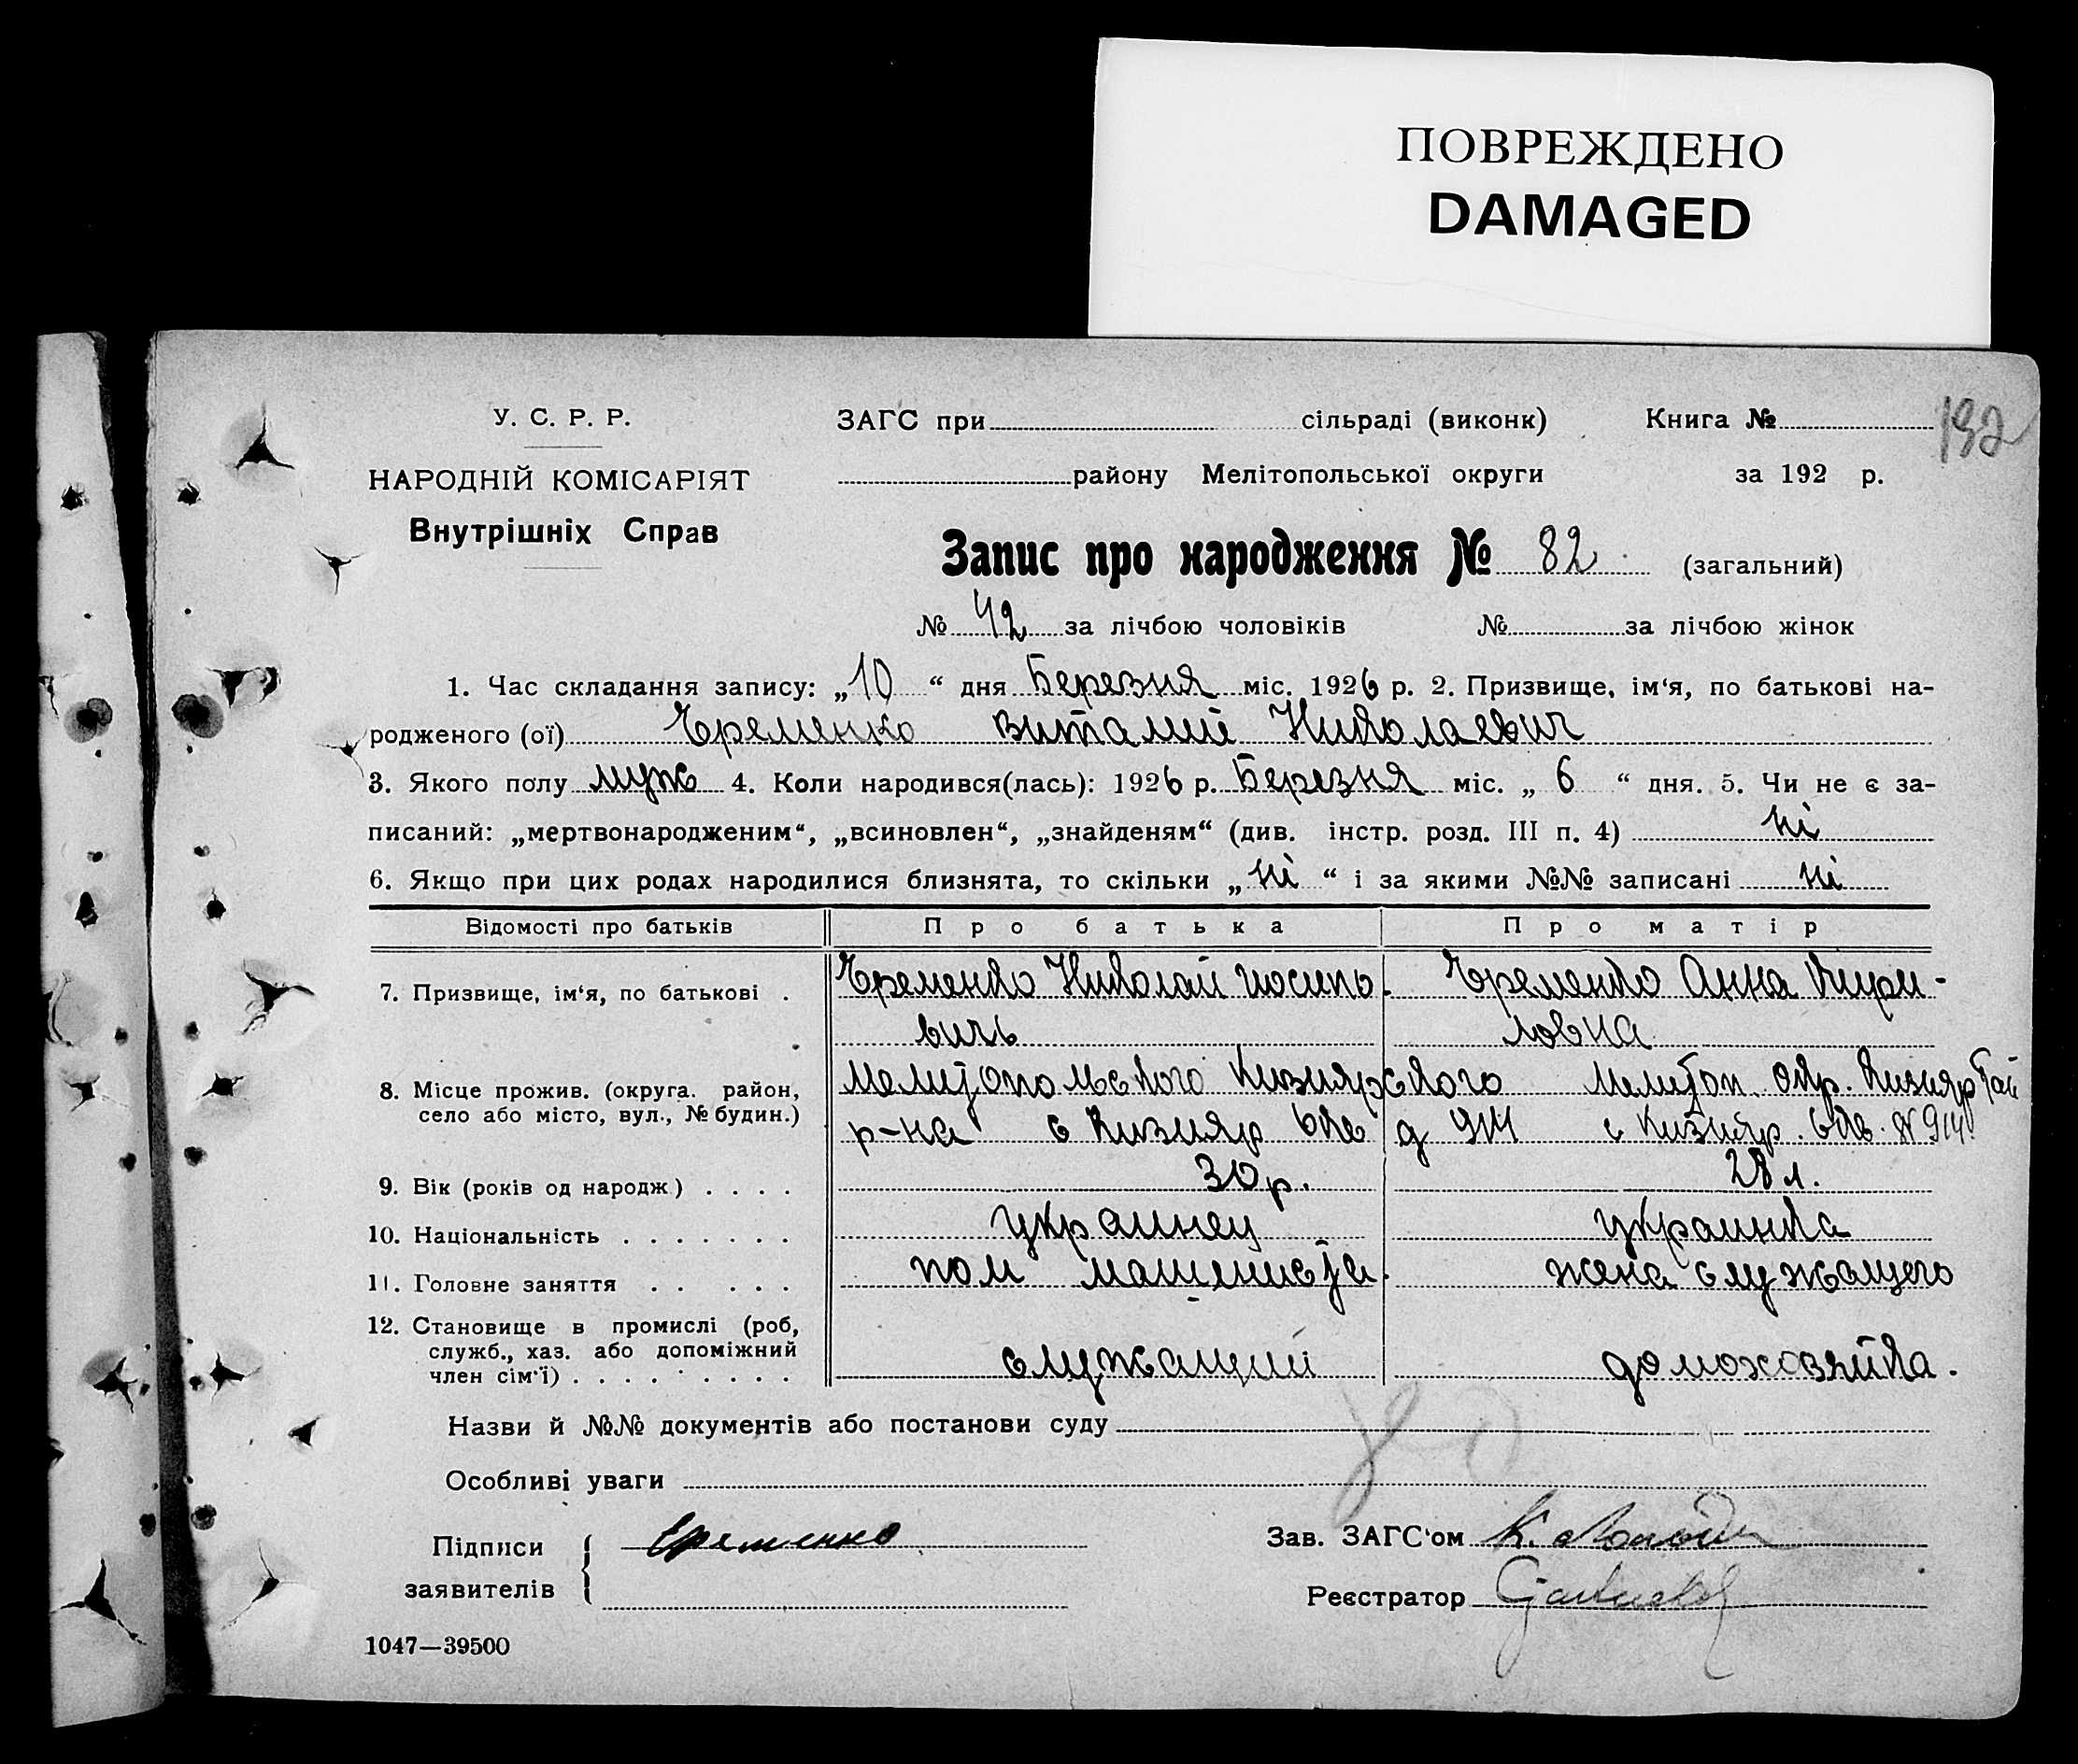 ПОВРЕЖДЕНО
DAMAGED
У. С. Р. Р.
ЗАГС при сільраді (виконк) Книга № 192
НАРОДНІЙ КОМІСАРІЯТ
району Мелітопольської округи за 192 р.
Внутрішніх Справ
Запис про народження № 82 (загальний)
№ 42 за лічбою чоловіків № за лічбою жінок
1. Час складання запису: „10“ дня Березня міс. 1926 р. 2. Призвище, ім‘я, по батькові на-
родженого (ої) Еременко Виталий Николаевич
3. Якого полу муж 4. Коли народився(лась): 1926 р. Березня міс. „ 6 “ дня. 5. Чи не є за-
писаний: „мертвонародженим“, „всиновлен“, „знайденям“ (див. інстр. розд. III п. 4) ні
6. Якщо при цих родах народилися близнята, то скільки „ ні “ і за якими №№ записані ні
Відомості про батьків Про батька Про матір
7. Призвище, ім‘я, по батькові . Еременко Николай Иосипо- Еременко Анна Кири-
вичь ловна
8. Місце прожив. (округа. район, Мелитопольского Кизиярского Мелитоп. окр. Кизияр
село або місто, вул., № будин.) р-на с Кизияр д 914 с Кизияр № 914
9. Вік (років од народж) . . . . 30 р. 28 л.
10. Національність . . . . . . . украинец украинка
11. Головне заняття . . . . . пом машиниста. жена служащего
12. Становище в промислі (роб,
служб., хаз. або допоміжний служащий домохозяйка.
член сім‘ї) . . . . . . . . .
Назви й №№ документів або постанови суду
Особливі уваги
Підписи Еременко
заявителів
Зав. ЗАГС‘ом К.
Реєстратор
1047—39500